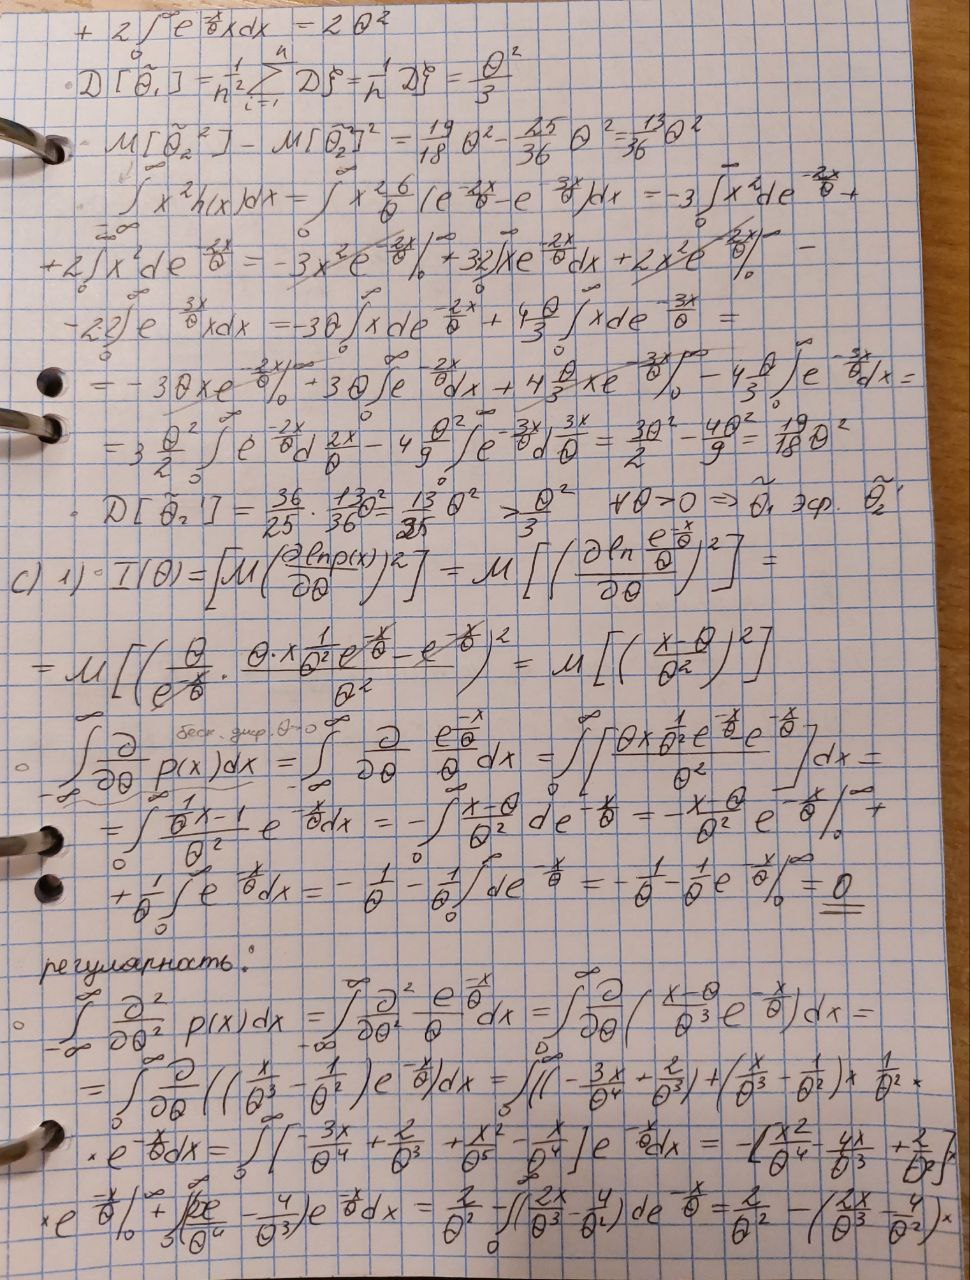 + 2∫₀^∞ e^{-x/θ} x dx = 2θ²
· D[θ̃₁] = 1/n² Σ_{i=1}^{n} Dξ = 1/n Dξ = θ²/3
· M[θ̃₂²] - M[θ̃₂]² = 19/18 θ² - 25/36 θ² = 13/36 θ²
∫_{-∞}^∞ x² h(x) dx = ∫₀^∞ x² 6/θ (e^{-2x/θ} - e^{-3x/θ}) dx = -3∫₀^∞ x² de^{-2x/θ} +
+ 2∫₀^∞ x² de^{-3x/θ} = -3x² e^{-2x/θ}|₀^∞ + 3·2∫₀^∞ x e^{-2x/θ} dx + 2x² e^{-3x/θ}|₀^∞ -
- 2·2∫₀^∞ e^{-3x/θ} x dx = -3θ∫₀^∞ x de^{-2x/θ} + 4θ/3 ∫₀^∞ x de^{-3x/θ} =
= -3θxe^{-2x/θ}|₀^∞ + 3θ∫₀^∞ e^{-2x/θ} dx + 4 θ/3 x e^{-3x/θ}|₀^∞ - 4 θ/3 ∫₀^∞ e^{-3x/θ} dx =
= 3 θ²/2 ∫₀^∞ e^{-2x/θ} d 2x/θ - 4 θ²/9 ∫₀^∞ e^{-3x/θ} d 3x/θ = 3θ²/2 - 4θ²/9 = 19/18 θ²
· D[θ̃₂'] = 36/25 · 13/36 θ² = 13/25 θ² > θ²/3 ∀θ>0 ⇒ θ̃₁ эф. θ̃₂'
c) 1) · I(θ) = [M(∂ln p(x)/∂θ)²] = M[(∂ln e^{-x/θ}/θ / ∂θ)²] =
= M[(θ/e^{-x/θ} · (θ·x 1/θ² e^{-x/θ} - e^{-x/θ})/θ²)²] = M[((x-θ)/θ²)²]
беск. диф. θ>0
∘ ∫_{-∞}^∞ ∂/∂θ p(x) dx = ∫_{-∞}^∞ ∂/∂θ e^{-x/θ}/θ dx = ∫₀^∞ [(θx 1/θ² e^{-x/θ} - e^{-x/θ})/θ²] dx =
= ∫₀^∞ (1/θ x - 1)/θ² e^{-x/θ} dx = -∫₀^∞ (x-θ)/θ² de^{-x/θ} = -(x-θ)/θ² e^{-x/θ}|₀^∞ +
+ 1/θ ∫₀^∞ e^{-x/θ} dx = -1/θ - 1/θ ∫₀^∞ de^{-x/θ} = -1/θ - 1/θ e^{-x/θ}|₀^∞ = 0
регулярность:
∘ ∫_{-∞}^∞ ∂²/∂θ² p(x) dx = ∫_{-∞}^∞ ∂²/∂θ² e^{-x/θ}/θ dx = ∫₀^∞ ∂/∂θ ((x-θ)/θ³ e^{-x/θ}) dx =
= ∫₀^∞ ∂/∂θ ((x/θ³ - 1/θ²) e^{-x/θ}) dx = ∫₀^∞ ((-3x/θ⁴ + 2/θ³) + (x/θ³ - 1/θ²) × 1/θ² ×
× e^{-x/θ} dx = ∫₀^∞ [-3x/θ⁴ + 2/θ³ + x²/θ⁵ - x/θ⁴] e^{-x/θ} dx = -[x²/θ⁴ - 4x/θ³ + 2/θ²] ×
× e^{-x/θ}|₀^∞ + ∫₀^∞ (2x/θ⁴ - 4/θ³) e^{-x/θ} dx = 2/θ² - ∫₀^∞ (2x/θ³ - 4/θ²) de^{-x/θ} = 2/θ² - (2x/θ³ - 4/θ²) ×